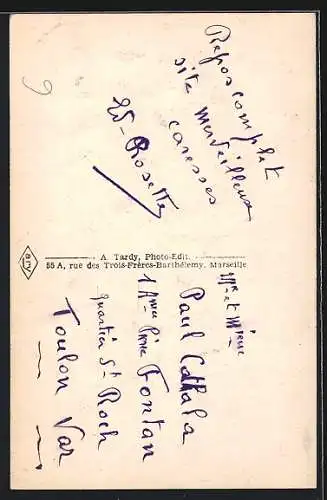 Repos complet
site merveilleux
caresses
Ed-Rosette
A. Tardy, Photo-Edit.
55 A, rue des Trois-Frères-Barthélemy, Marseille
ary
Mr et Mme
Paul Cathala
1 Pierre Fontan
quartier St Roch
Toulon Var
9